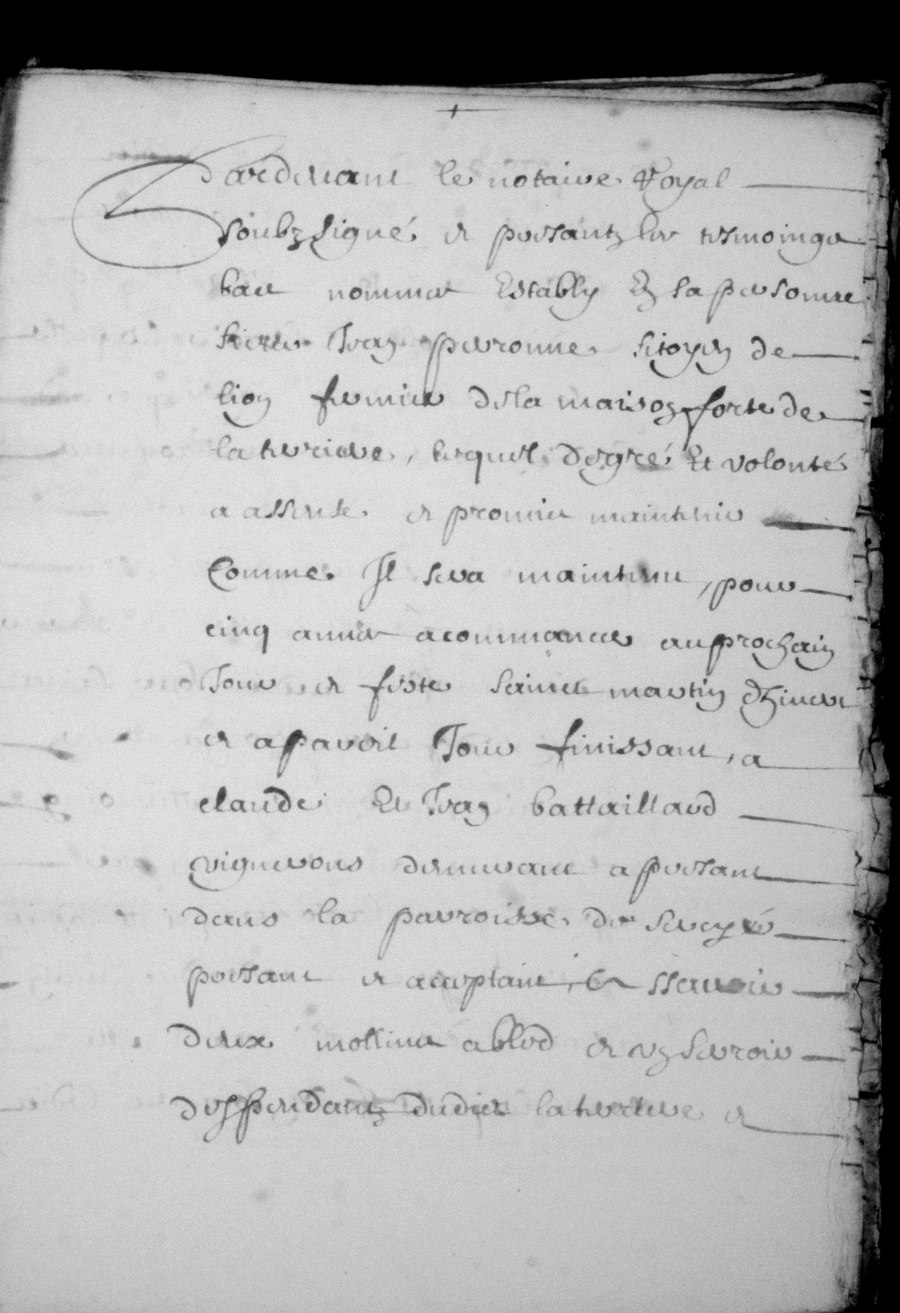 Pardevant le notaire Royal
soubzsigné et presantz les tesmoings
bas nommes Estably En sa personne
sieur Jean perronne sitoyen de
lion fermier de la maison forte de
la terriere, lequel de gré Et volonté
a assensé et promict maintenir
Comme Il sera maintenu, pour
cinq annes a commancer au prochain
Jour et feste sainct martin d'hiver
et a pareil Jour finissant, a
claude Et Jean battaillard
vignerons demeurant a presant
dans la parroisse de
presant et acceptant, Est ssavoir
deux mollins a bled et un serroir
desppendantz dudict la terriere et